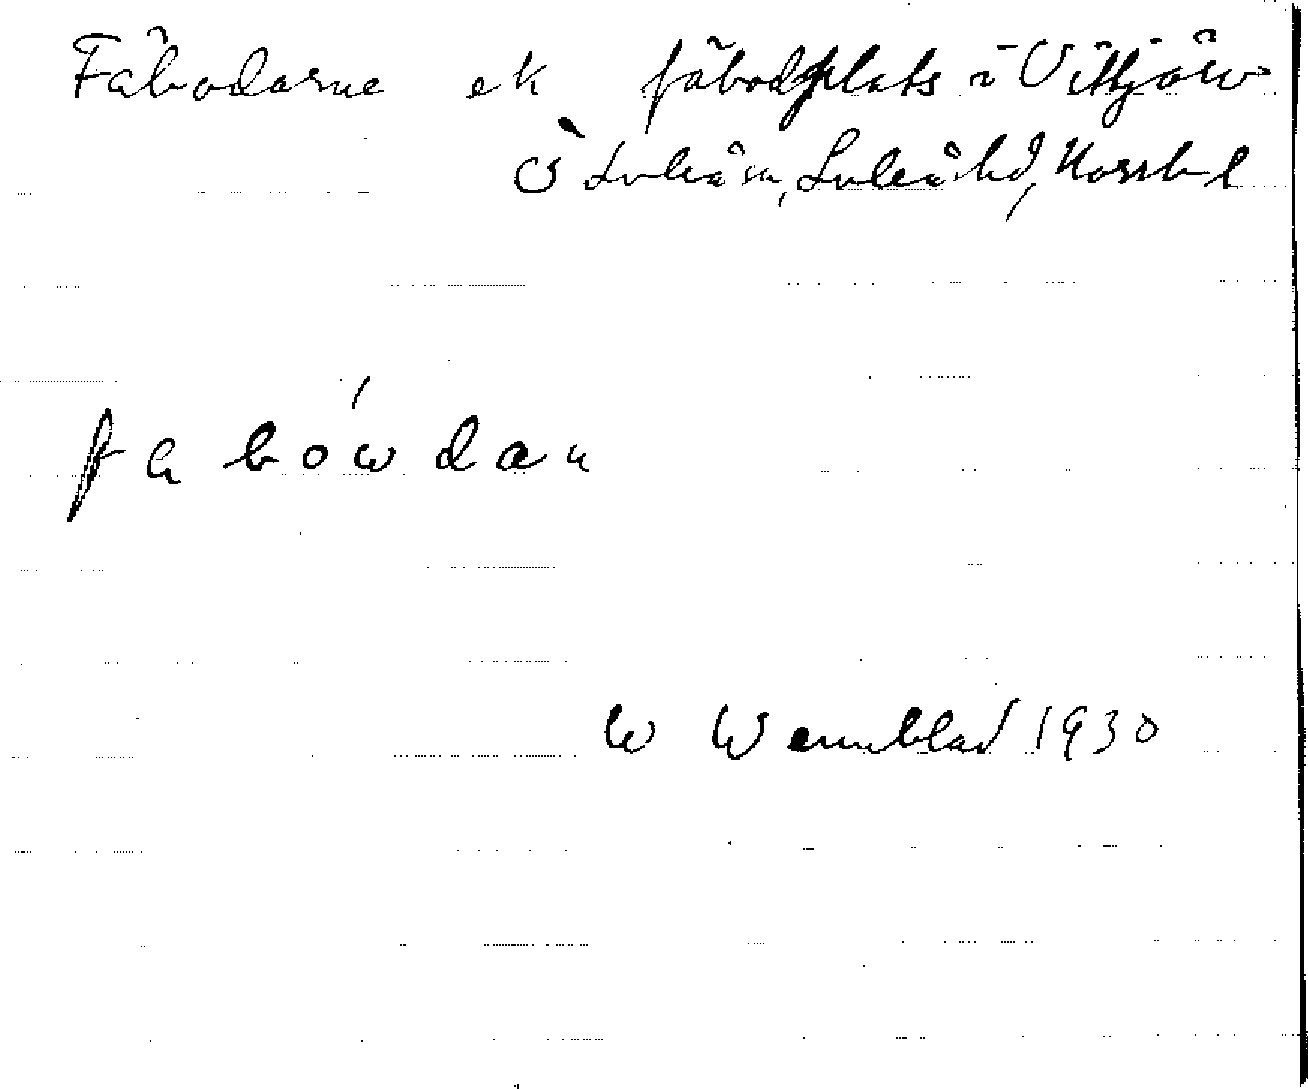 Fäbodarne ek fäbodplats i Vittjärv
Ö Luleå sn, Luleå hd, Norrb l
fabówdan
W Wennblad 1930